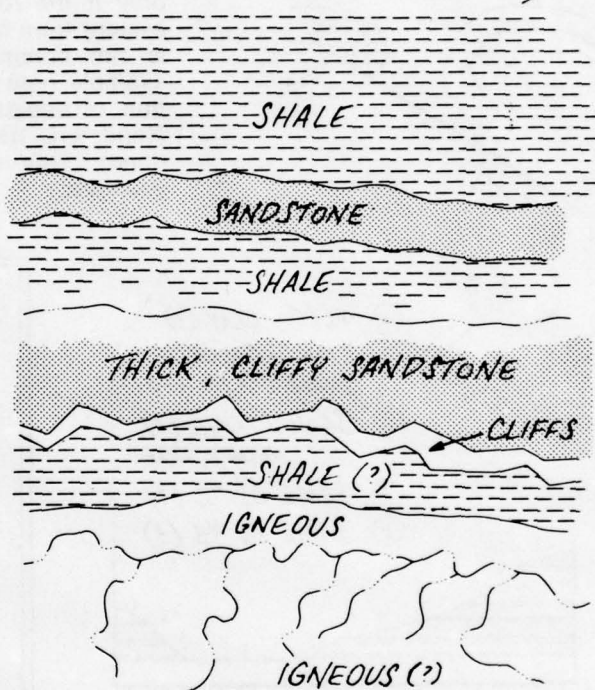 SHALE
SANDSTONE
SHALE
THICK, CLIFFY SANDSTONE
CLIFFS
SHALE (?)
IGNEOUS
IGNEOUS (?)